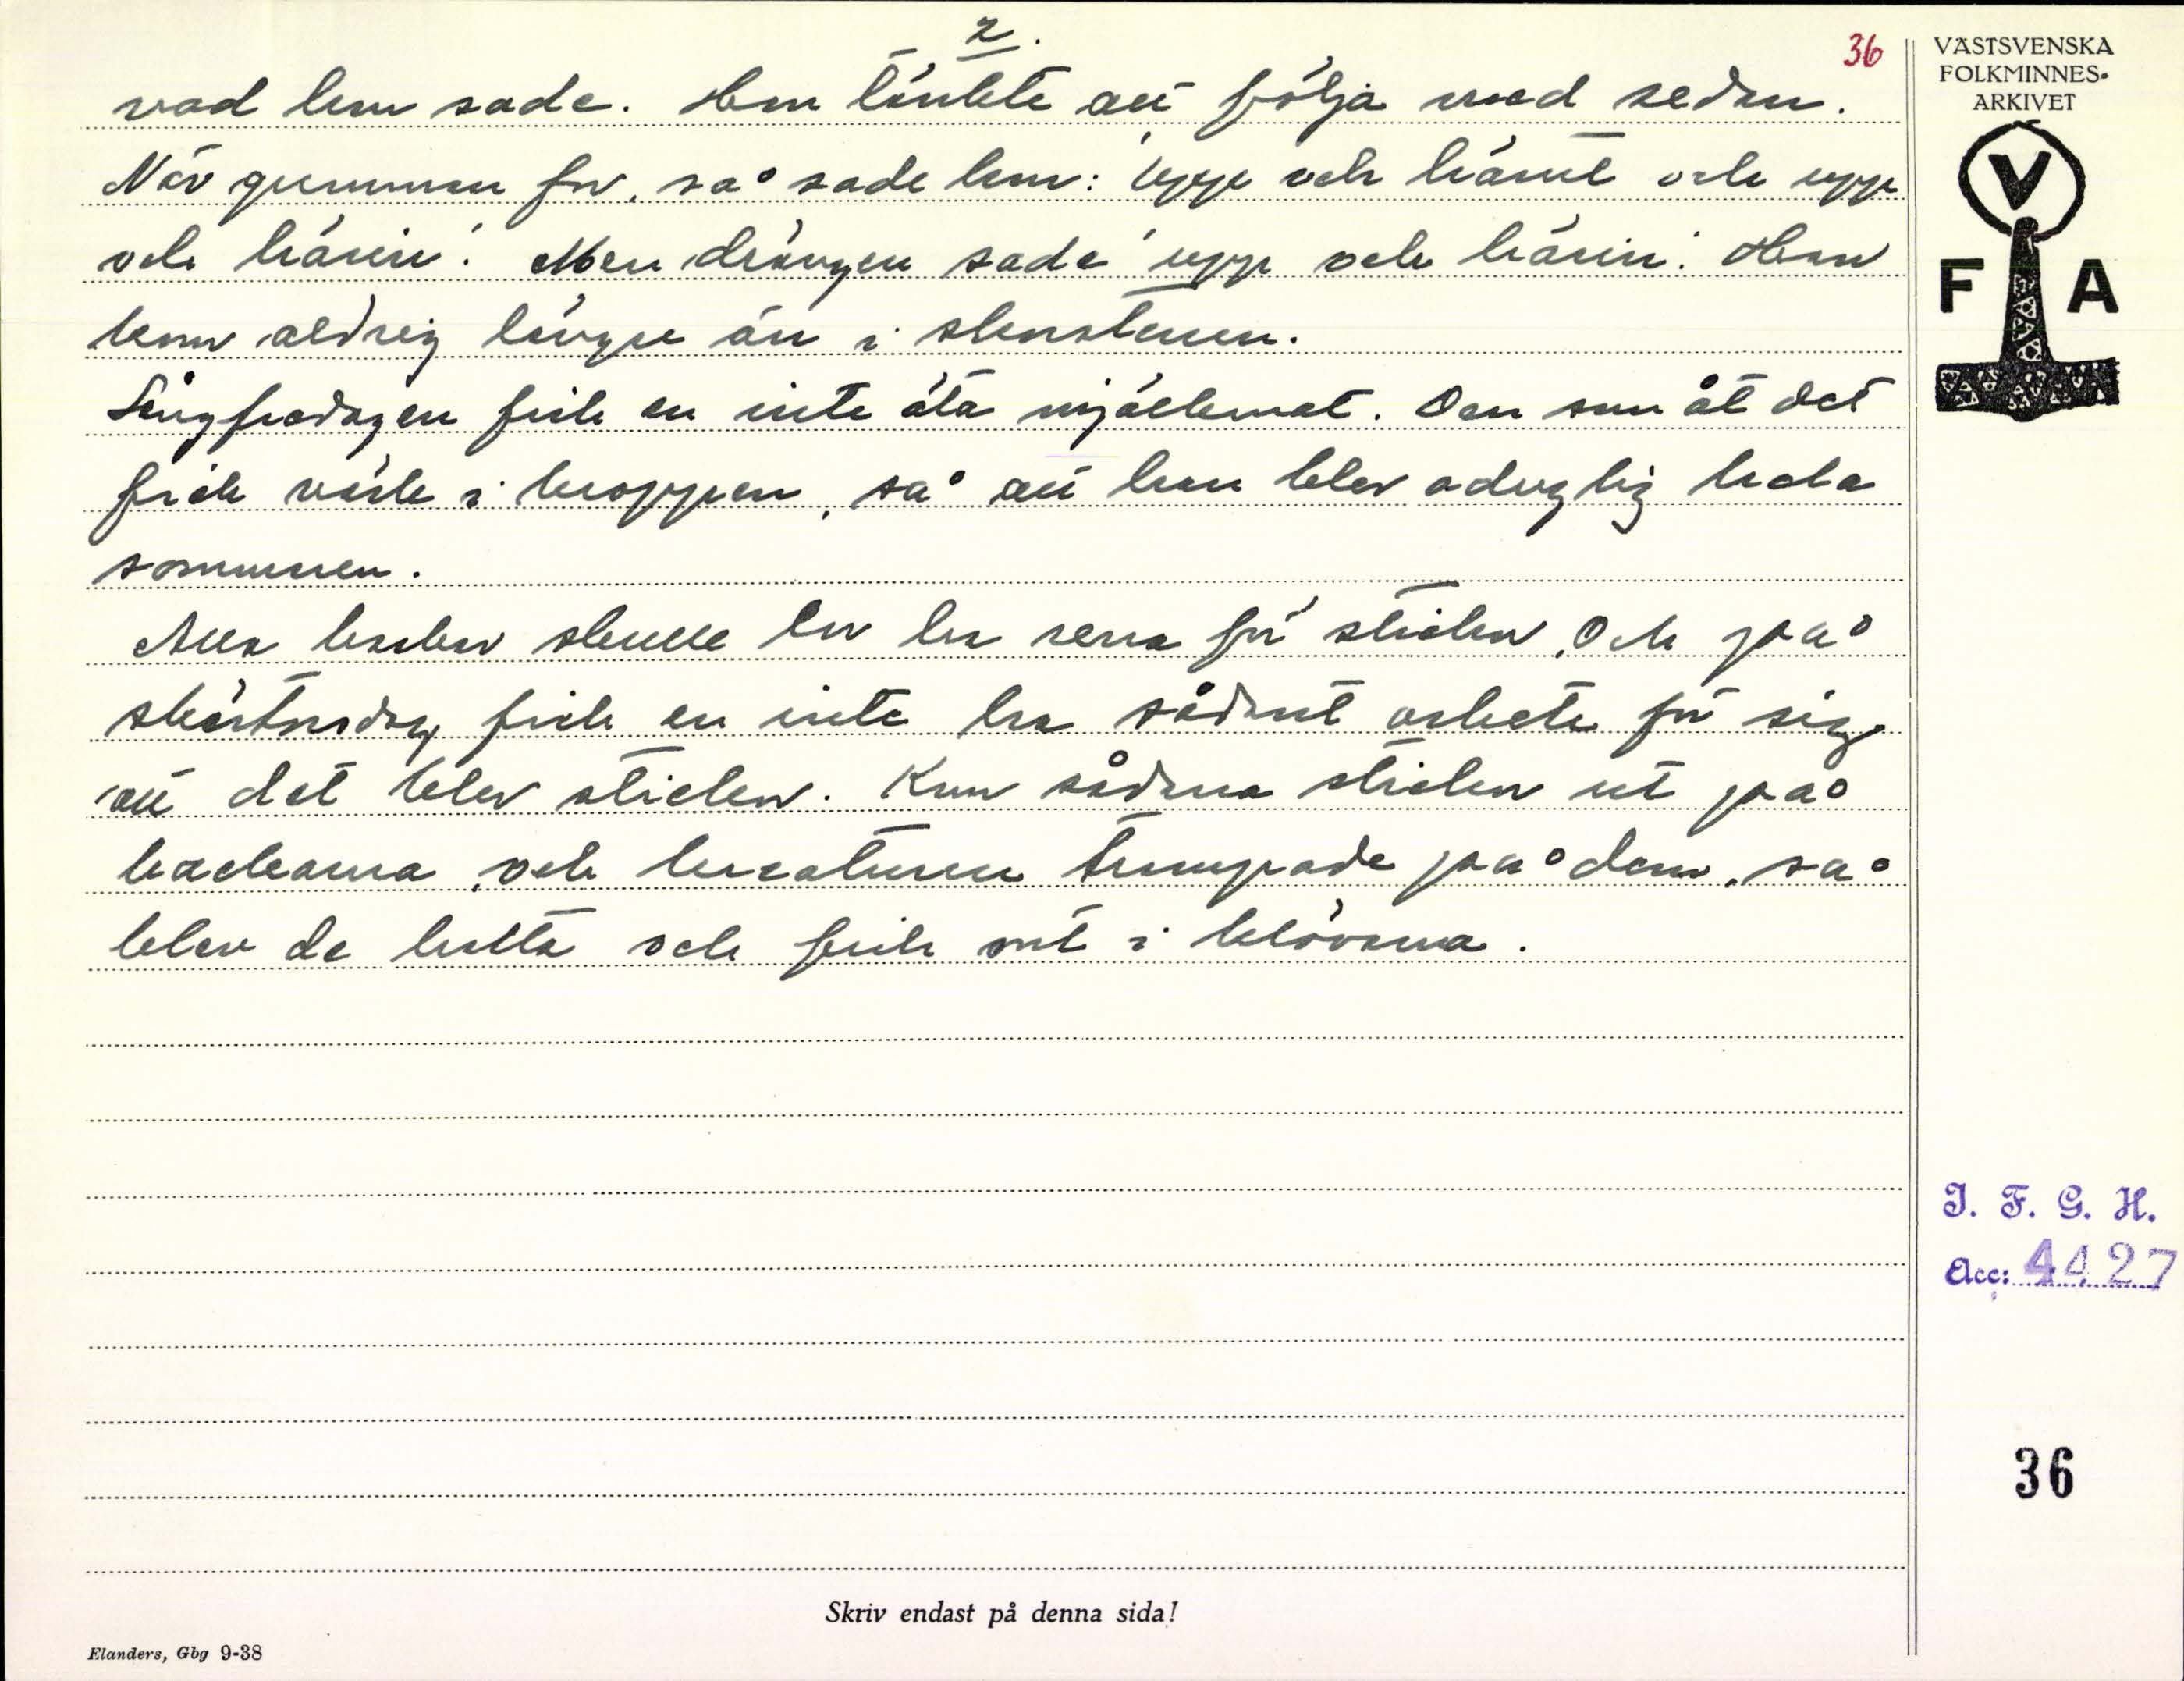 2.
36
vad hon sade. Han tänkte att följa med sedan.
När gumman for, så sade hon: "upp och häänt och upp
och häärin". Men drängen sade "upp och häärin". Han
kom aldrig längre än i skorstenen.
Långfredagen fick en inte äta mjölkmat. Den som åt det
fick värk i kroppen, så att han blev oduglig hela
sommaren.
Alla backar skulle en ha rena för stickor. Och på
skärtorsdag fick en inte ha sådant arbete för sig
att det blev stickor. Kom sådana stickor ut på
backarna, och kreaturen trampade på dem, så
blev de halta och fick ont i klövarna.
VÄSTSVENSKA
FOLKMINNES-
ARKIVET
V
F A
I. F. G. H.
Acc: 4427
36
Skriv endast på denna sida!
Elanders, Gbg 9-38